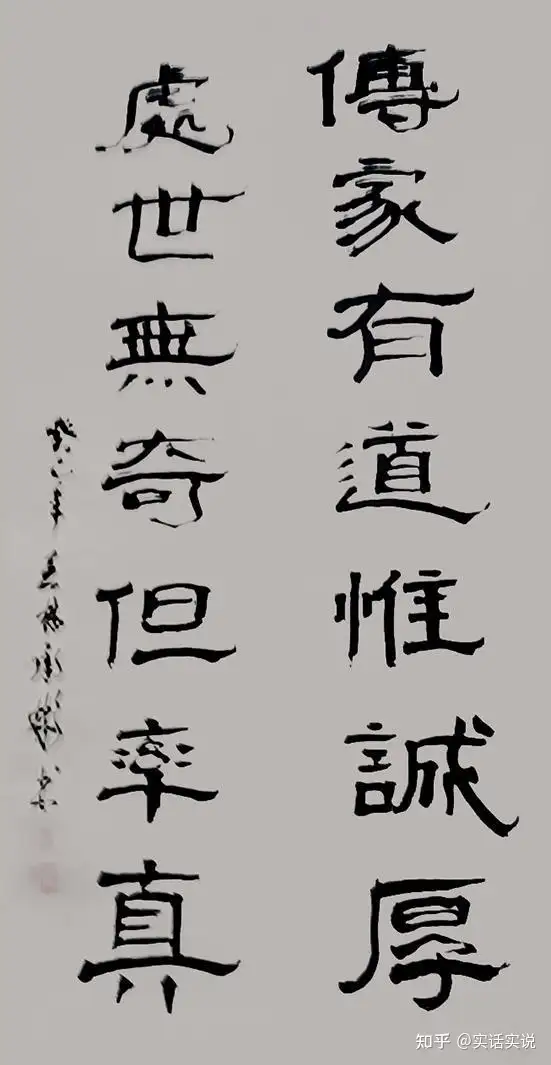 傳家有道惟誠厚
處世無奇但率真
知乎 @实话实说